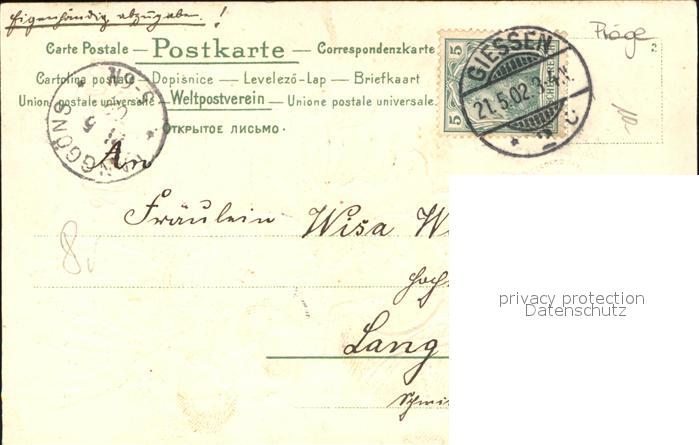 Eigenhändig abzugeben. !
Präge
Carte Postale — Postkarte — Correspondenzkarte
Cartolina postale — Dopisnice — Levelező-Lap — Briefkaart
Union postale universelle — Weltpostverein — Unione postale universale
ОТКРЫТОЕ ПИСЬМО
5 5
GIESSEN
21.5.02.3-4.N.
* 2 c
LANGGÖNS
5-6N
An
Fräulein Wisa W
hoch
privacy protection
Datenschutz
Lang
Schmi